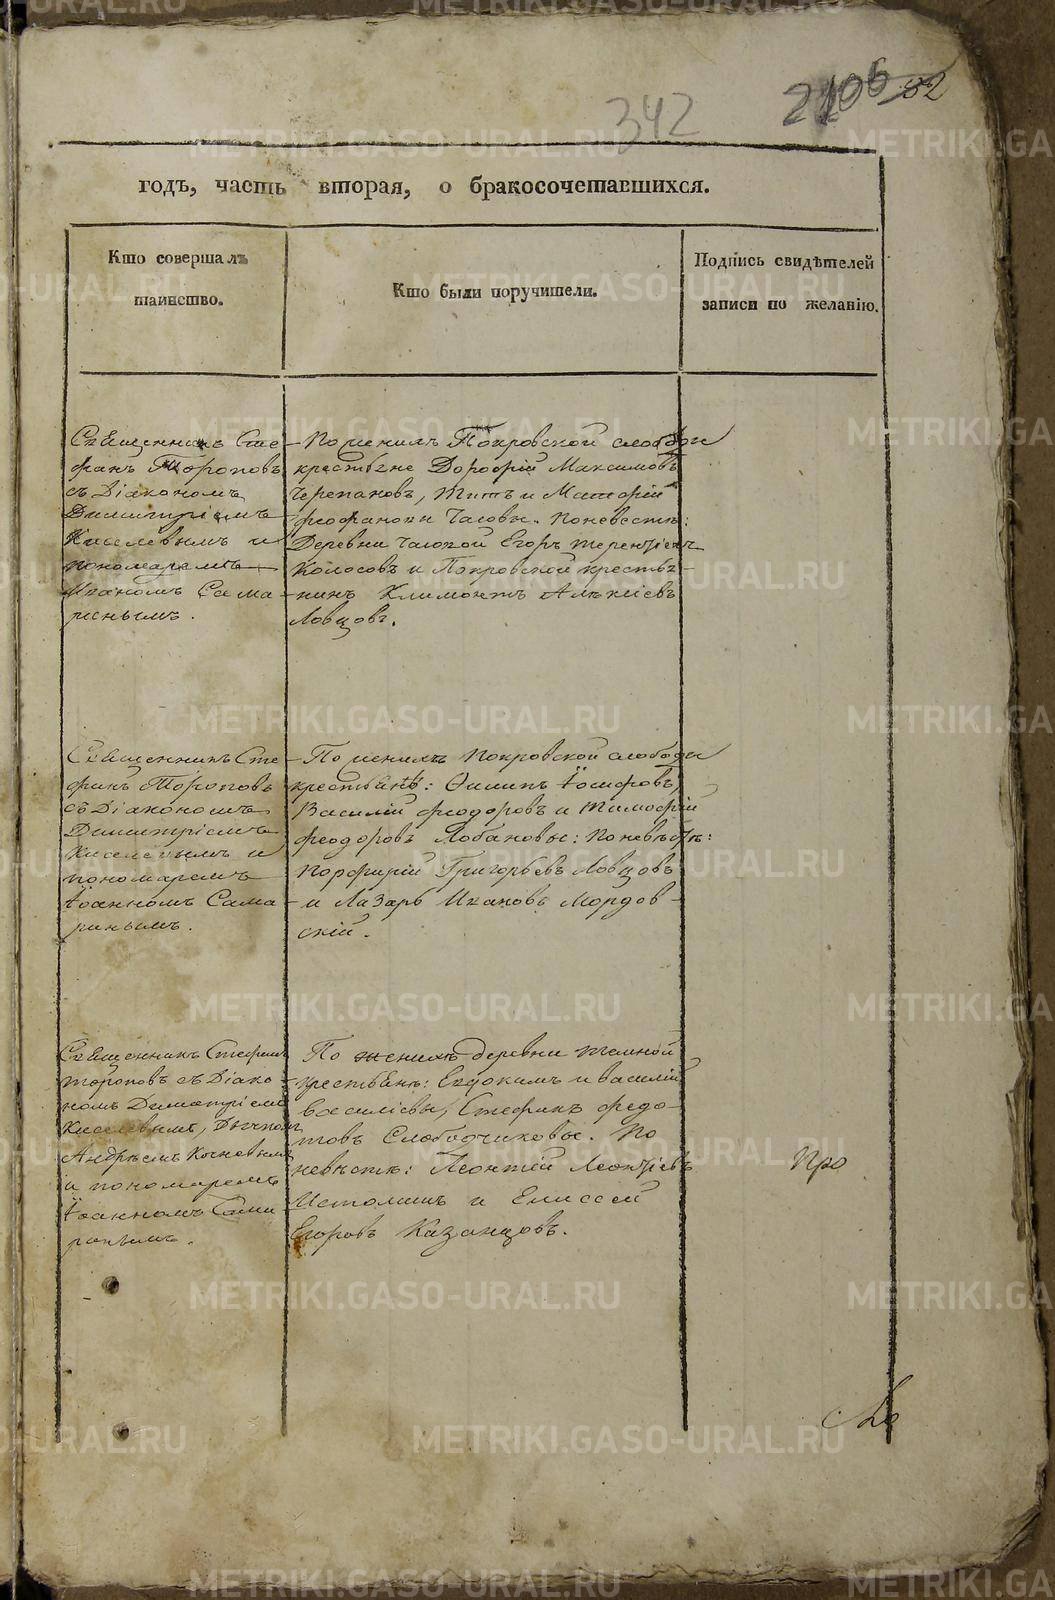 342
2106 82
годъ, часть вторая, о бракосочетавшихся.
Кто совершалъ
таинство.
Кто были поручители.
Подпись свидѣтелей
записи по желанію.
Священникъ Сте-
фанъ Тороповъ
съ Діакономъ
Димитріемъ
Киселевымъ и
пономаремъ
Иваномъ Сама-
ринымъ.
По женихѣ Покровской слободы
крестьяне Дорофей Максимовъ
Черепановъ, Титъ и Матѳей
Ѳеофановы Часовы. По невестѣ:
Деревни Егоръ Терентіевъ
Колосовъ и Покровской крестья-
нинъ Климонтъ Алексіевъ
Ловцовъ.
Священникъ Сте-
фанъ Тороповъ
съ Діакономъ
Димитріемъ
Киселевымъ и
пономаремъ
Іоанномъ Сама-
ринымъ.
По женихѣ Покровской слободы
крестьянѣ: Филипъ Іосифовъ,
Василій Феодоровъ и Тимофей
Феодоровъ Лобановы: По невѣстѣ:
Порфирій Григорьевъ Ловцовъ
и Лазарь Ивановъ Мордов-
скій.
Священникъ Стефанъ
Тороповъ съ Діако-
номъ Димитріемъ
Киселевымъ, Дьячкомъ
Андрѣемъ
и пономаремъ
Іоанномъ Сама-
ринымъ.
По женихѣ деревни Темной
крестьянѣ: Евдокимъ и Василій
Василіевы, Стефанъ Федо-
товъ Слободчиковы. По
невѣстѣ: Леонтій Леонтіевъ
и Елисей
Егоровъ Казанцовъ.
Про
METRIKI.GASO-URAL.RU